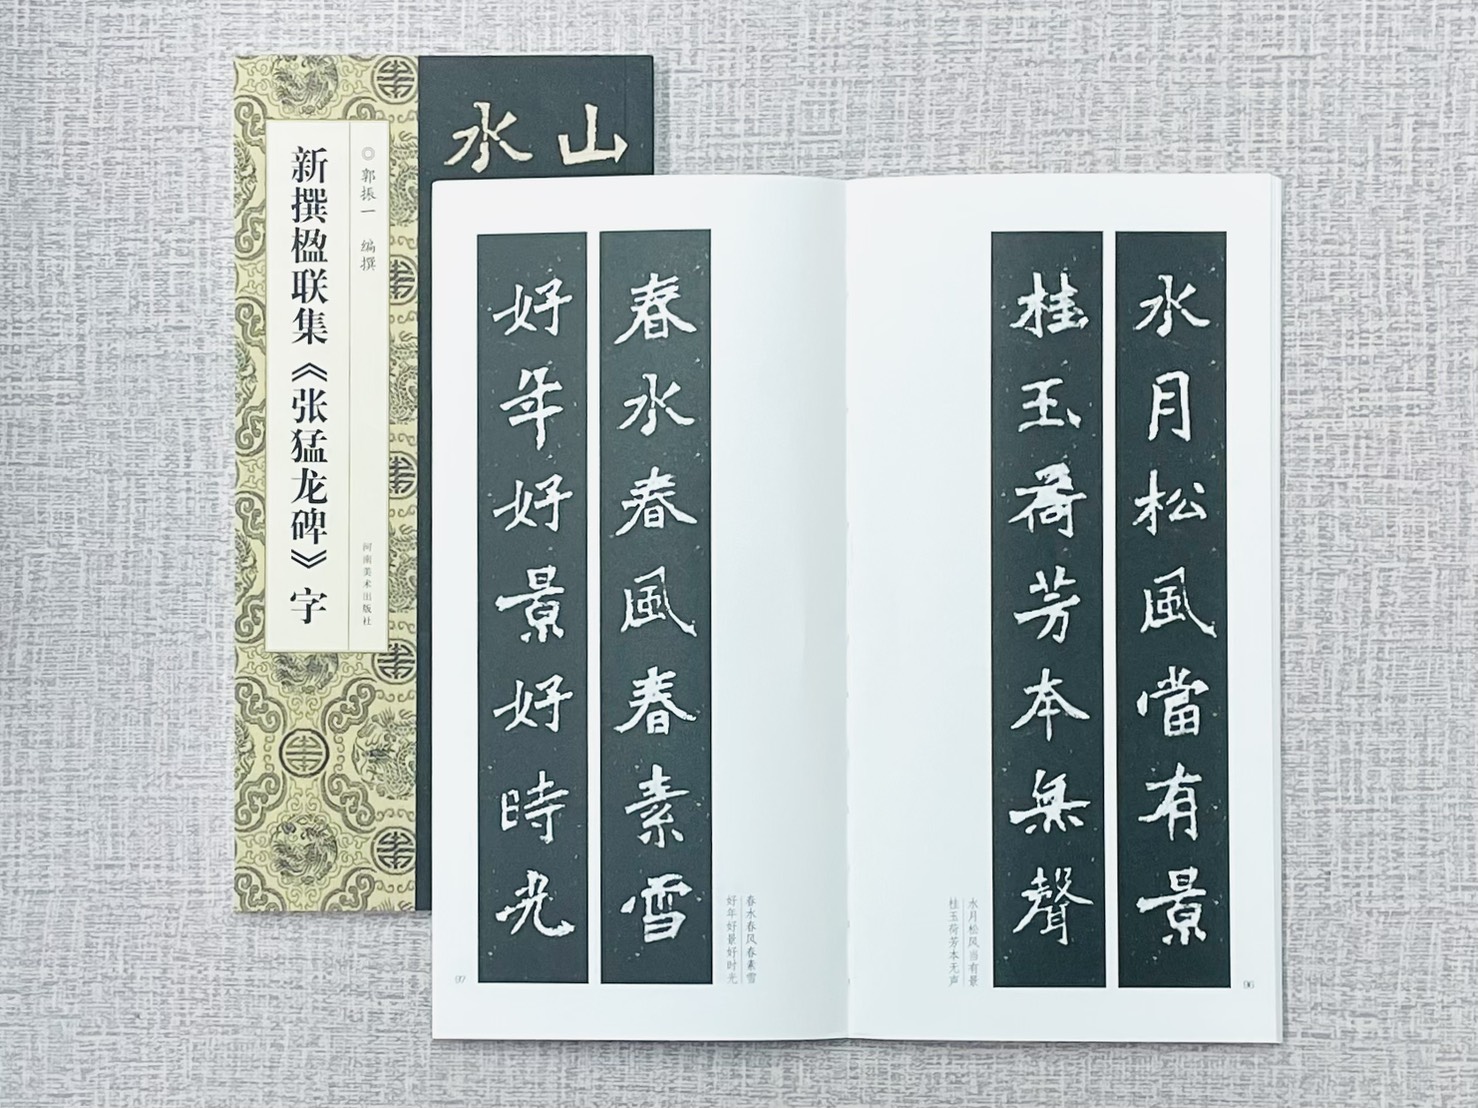 新撰楹联集《张猛龙碑》字
◎郭振一 编撰
河南美术出版社
山
水
水月松風當有景
桂玉荷芳本無聲
水月松风当有景
桂玉荷芳本无声
96
春水春風春素雪
好年好景好時光
春水春风春素雪
好年好景好时光
97